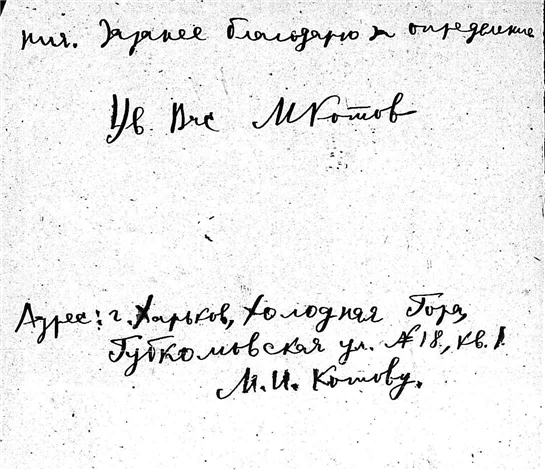 ния. Заранее благодарю за определение
Ув. Вас МКотов
Адрес: г. Харьков, Холодная Гора,
Губкомовская ул. № 18, кв. 1.
М.И. Котову.